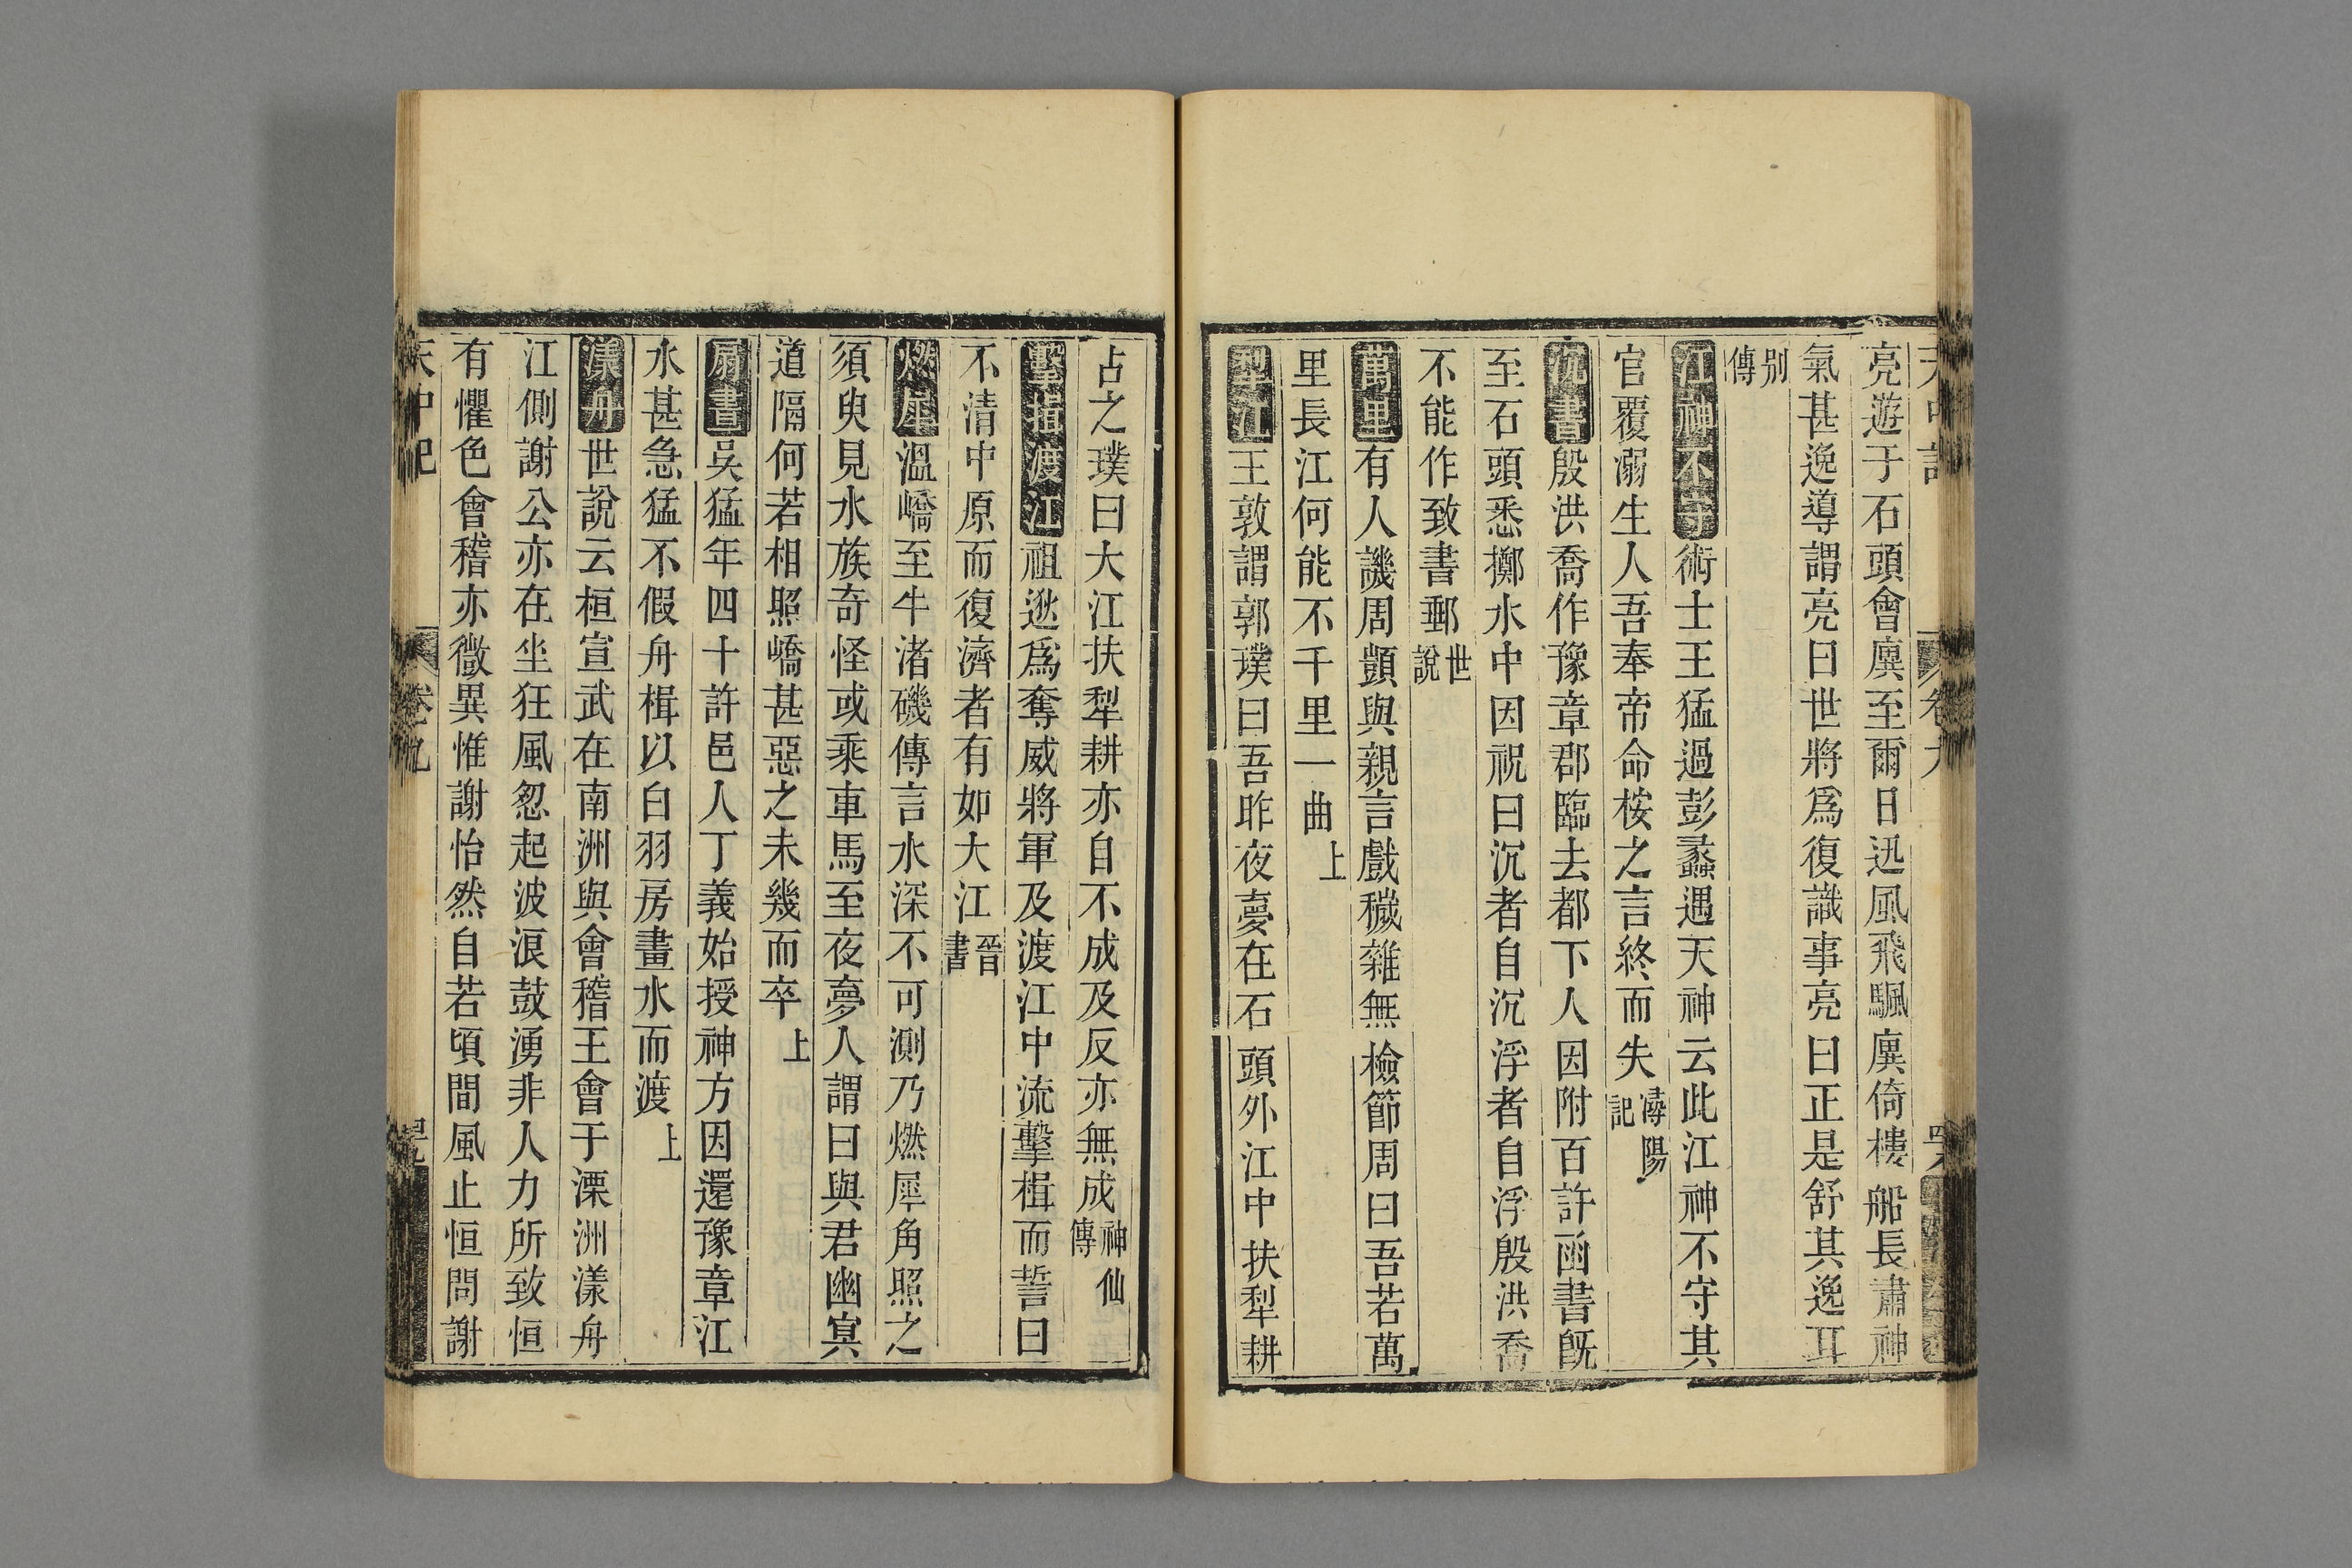 亮遊于石頭會廙至爾日迅風飛颿廙倚樓船長肅神
氣甚逸導謂亮曰世將爲復識事亮曰正是舒其逸耳
別傳
江神不守術士王猛過彭蠡遇天神云此江神不守其
官覆溺生人吾奉帝命桉之言終而失潯陽記
沉書殷洪喬作豫章郡臨去都下人因附百許函書旣
至石頭悉擲水中因祝曰沉者自沉浮者自浮殷洪喬
不能作致書郵世說
萬里有人譏周顗與親言戲穢雜無檢節周曰吾若萬
里長江何能不千里一曲上
犁江王敦謂郭璞曰吾昨夜夢在石頭外江中扶犁耕
占之璞曰大江扶犁耕亦自不成及反亦無成神仙傳
擊楫渡江祖逖爲奪威將軍及渡江中流擊楫而誓曰
不清中原而復濟者有如大江晉書
燃犀溫嶠至牛渚磯傳言水深不可測乃燃犀角照之
須臾見水族奇怪或乘車馬至夜夢人謂曰與君幽冥
道隔何若相照嶠甚惡之未幾而卒上
扇畫吳猛年四十許邑人丁義始授神方因還豫章江
水甚急猛不假舟楫以白羽房畫水而渡上
漾舟世說云桓宣武在南洲與會稽王會于溧洲漾舟
江側謝公亦在坐狂風忽起波浪鼓湧非人力所致恒
有懼色會稽亦微異惟謝怡然自若頃間風止恒問謝
天中記 卷九